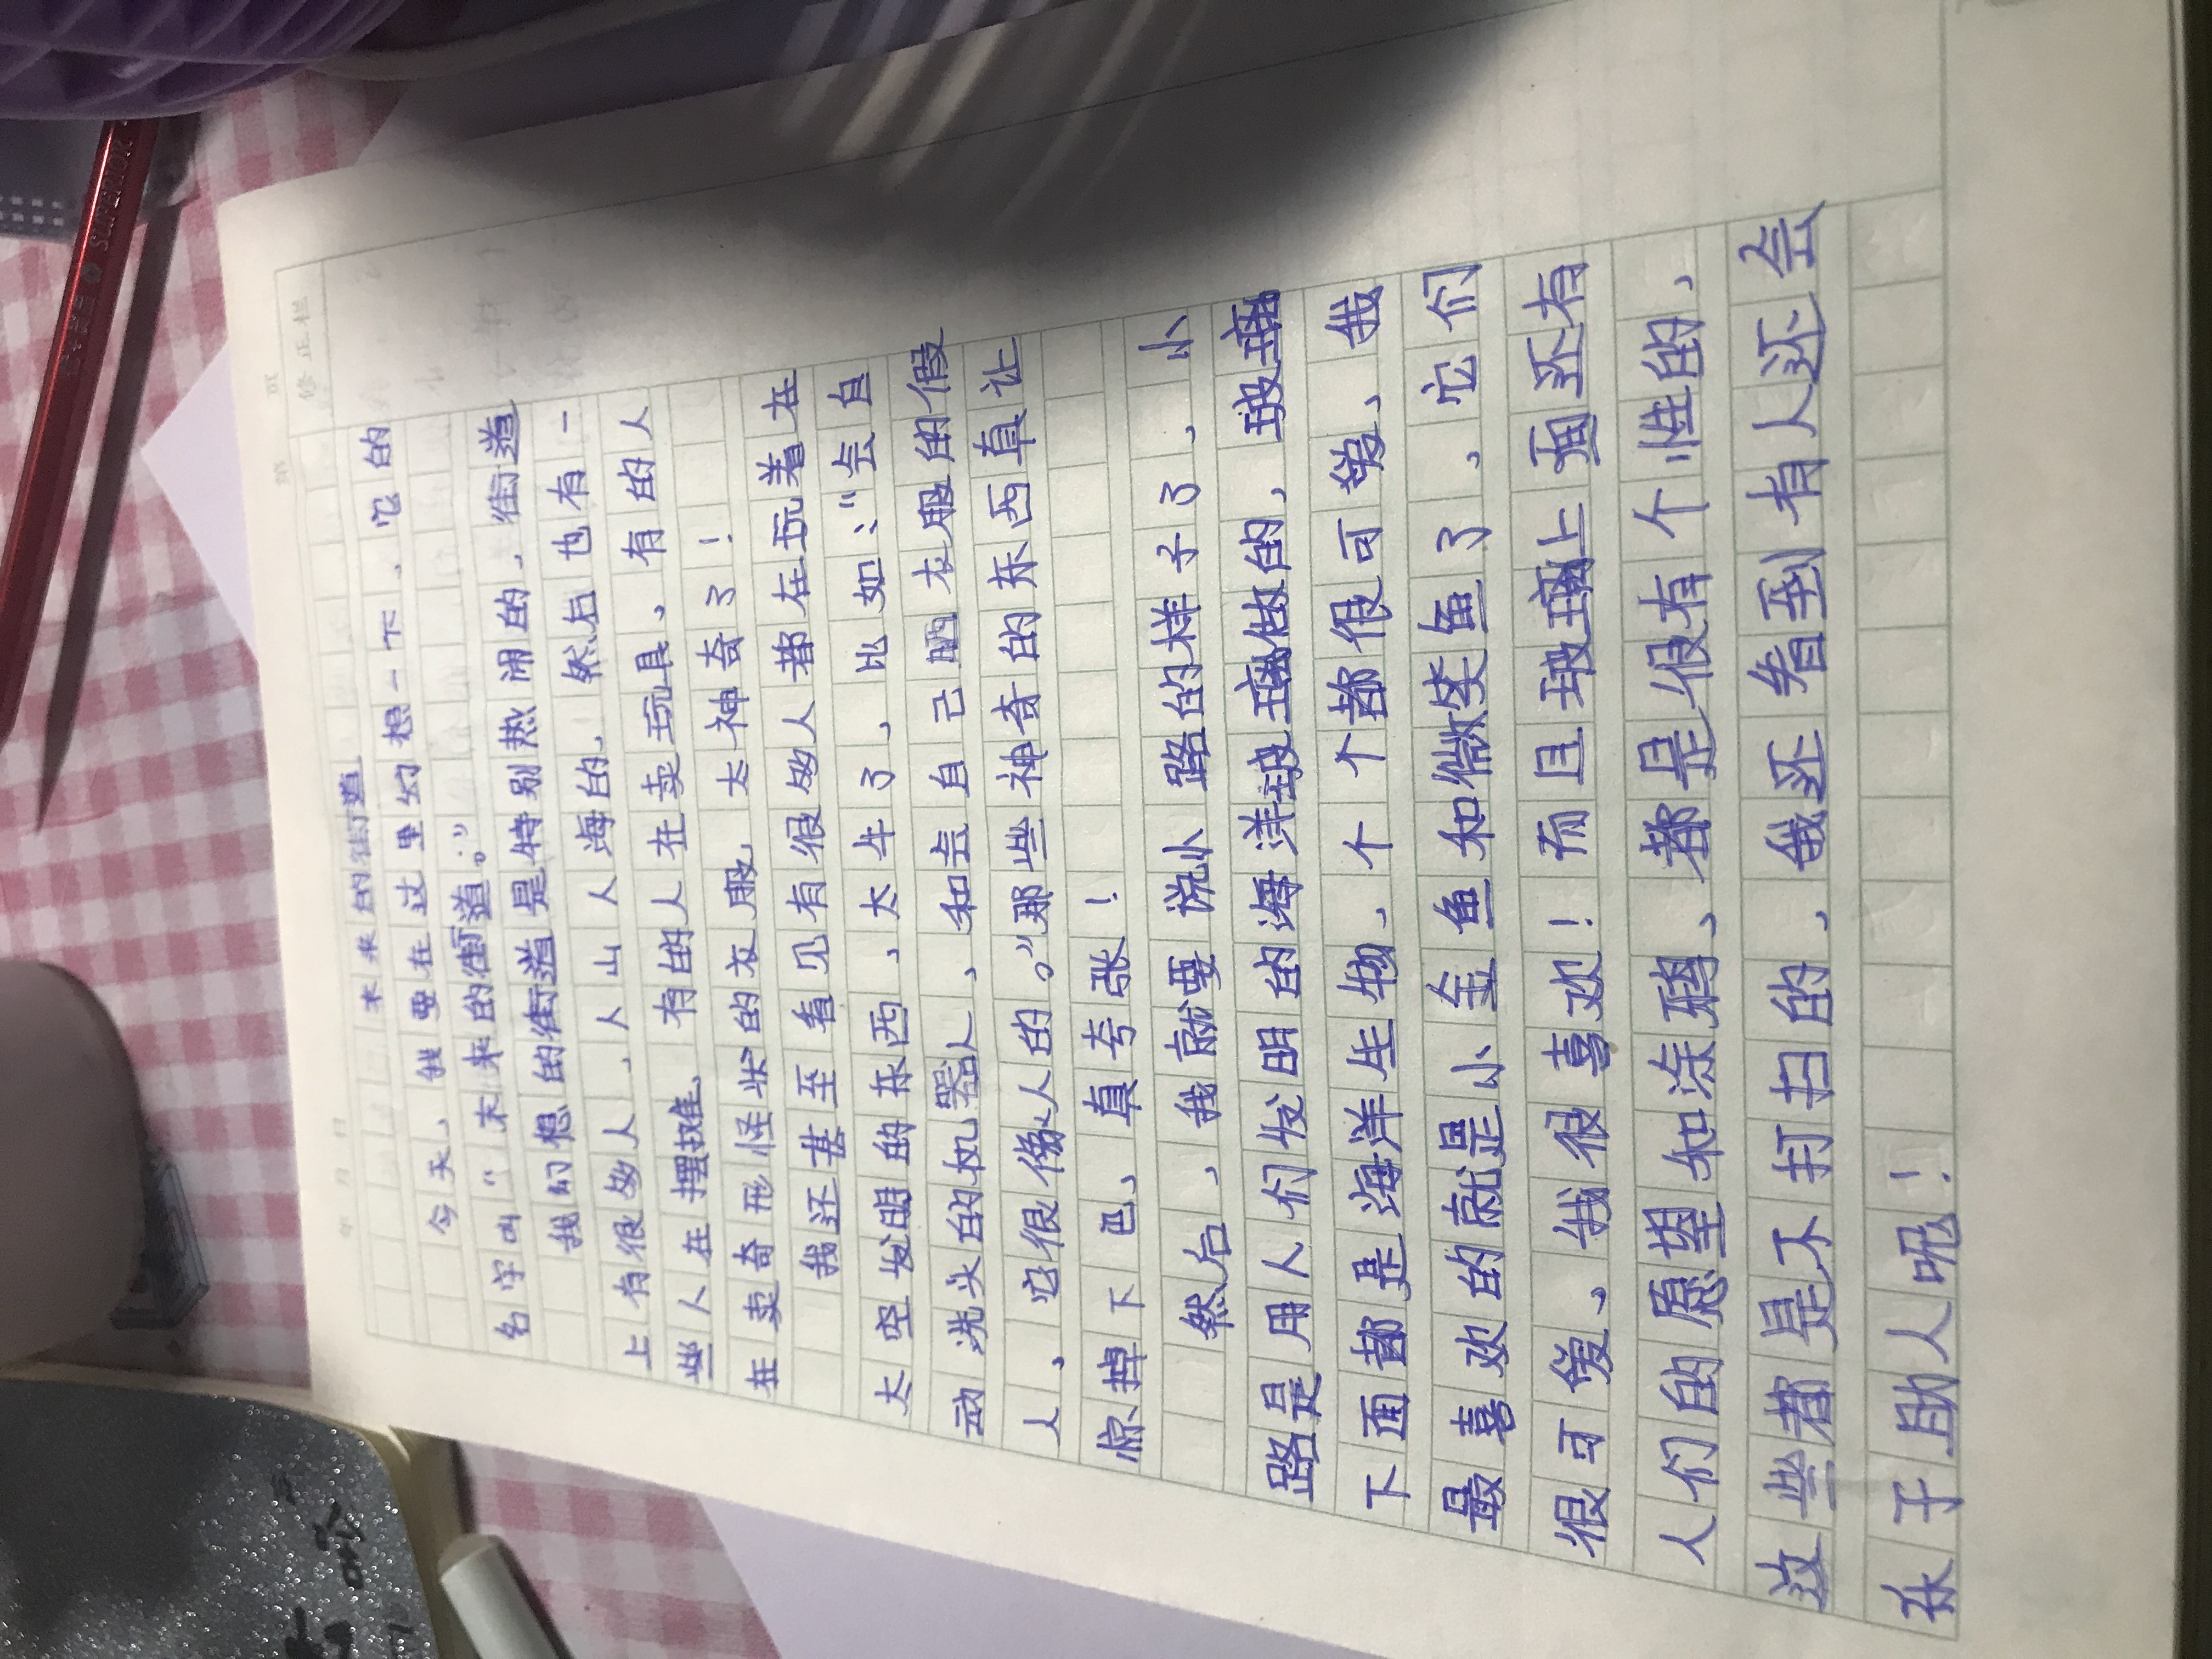 未来的街道
今天，我要在这里幻想一下，它的
名字叫“未来的街道。”
我幻想的街道是特别热闹的，街道
上有很多人，人山人海的，然后也有一
些人在摆摊，有的人在卖玩具，有的人
在卖奇形怪状的衣服，太神奇了！
我还甚至看见有很多人都在玩着在
太空发明的东西，太牛了，比如：“会自
动洗头的机器人，和会自己晒衣服的假
人，它很像人的。”那些神奇的东西真让
惊掉下巴，真夸张！
然后，我就要说小路的样子了，小
路是用人们发明的海洋玻璃做的，玻璃
下面都是海洋生物，个个都很可爱，我
最喜欢的就是小金鱼和微笑鱼了，它们
很可爱，我很喜欢！而且玻璃上面还有
人们的愿望和涂鸦，都是很有个性的，
这些都是不打扫的，我还看到有人还会
乐于助人呢！
年 月 日
修正栏
SUPERIOR